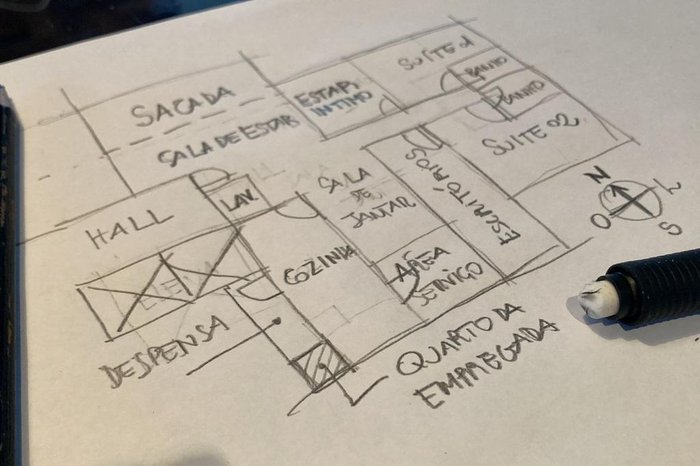 SUÍTE 01
BANHO
BANHO
SUITE 02
ESTAR
ÍNTIMO
SACADA
SALA DE ESTAR
ESCRITÓRIOS
SALA
DE
JANTAR
LAV.
HALL
COZINHA
ÁREA
SERVIÇO
DESPENSA
QUARTO DA
EMPREGADA
N
L
O
S